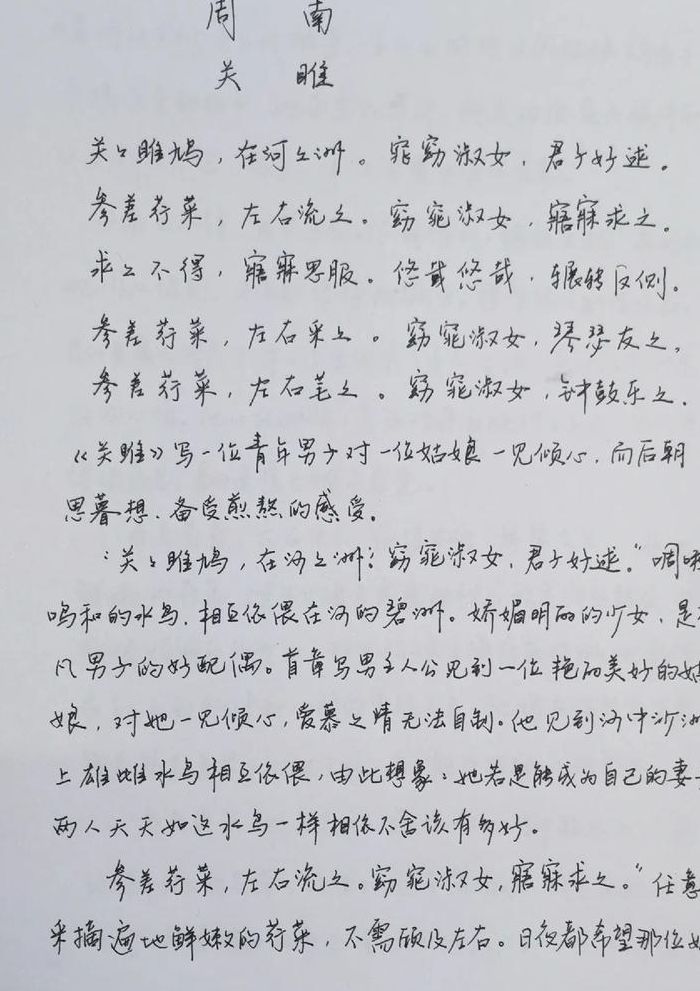 周 南
关 雎
关々雎鸠，在河之洲。窕窈淑女，君子好逑。
参差荇菜，左右流之。窈窕淑女，寤寐求之。
求之不得，寤寐思服。悠哉悠哉，辗转反侧。
参差荇菜，左右采之。窈窕淑女，琴瑟友之，
参差荇菜，左右芼之。窈窕淑女，钟鼓乐之．
《关雎》写一位青年男子对一位姑娘一见倾心，而后朝
思暮想、备受煎熬的感受。
“关々雎鸠，在河之洲；窈窕淑女，君子好逑。”啁啾
鸣和的水鸟，相互依偎在河的碧洲。娇媚明丽的少女，是
凡男子的好配偶。首章写男主人公见到一位艳丽美好的姑
娘，对她一见倾心，爱慕之情无法自制。他见到河中沙洲
上雄雌水鸟相互依偎，由此想象：她若是能成为自己的妻
两人天天如这水鸟一样相依不舍该有多好。
参差荇菜，左右流之。窈窕淑女，寤寐求之。”任意
采摘遍地鲜嫩的荇菜，不需顾及左右。日夜都希望那位